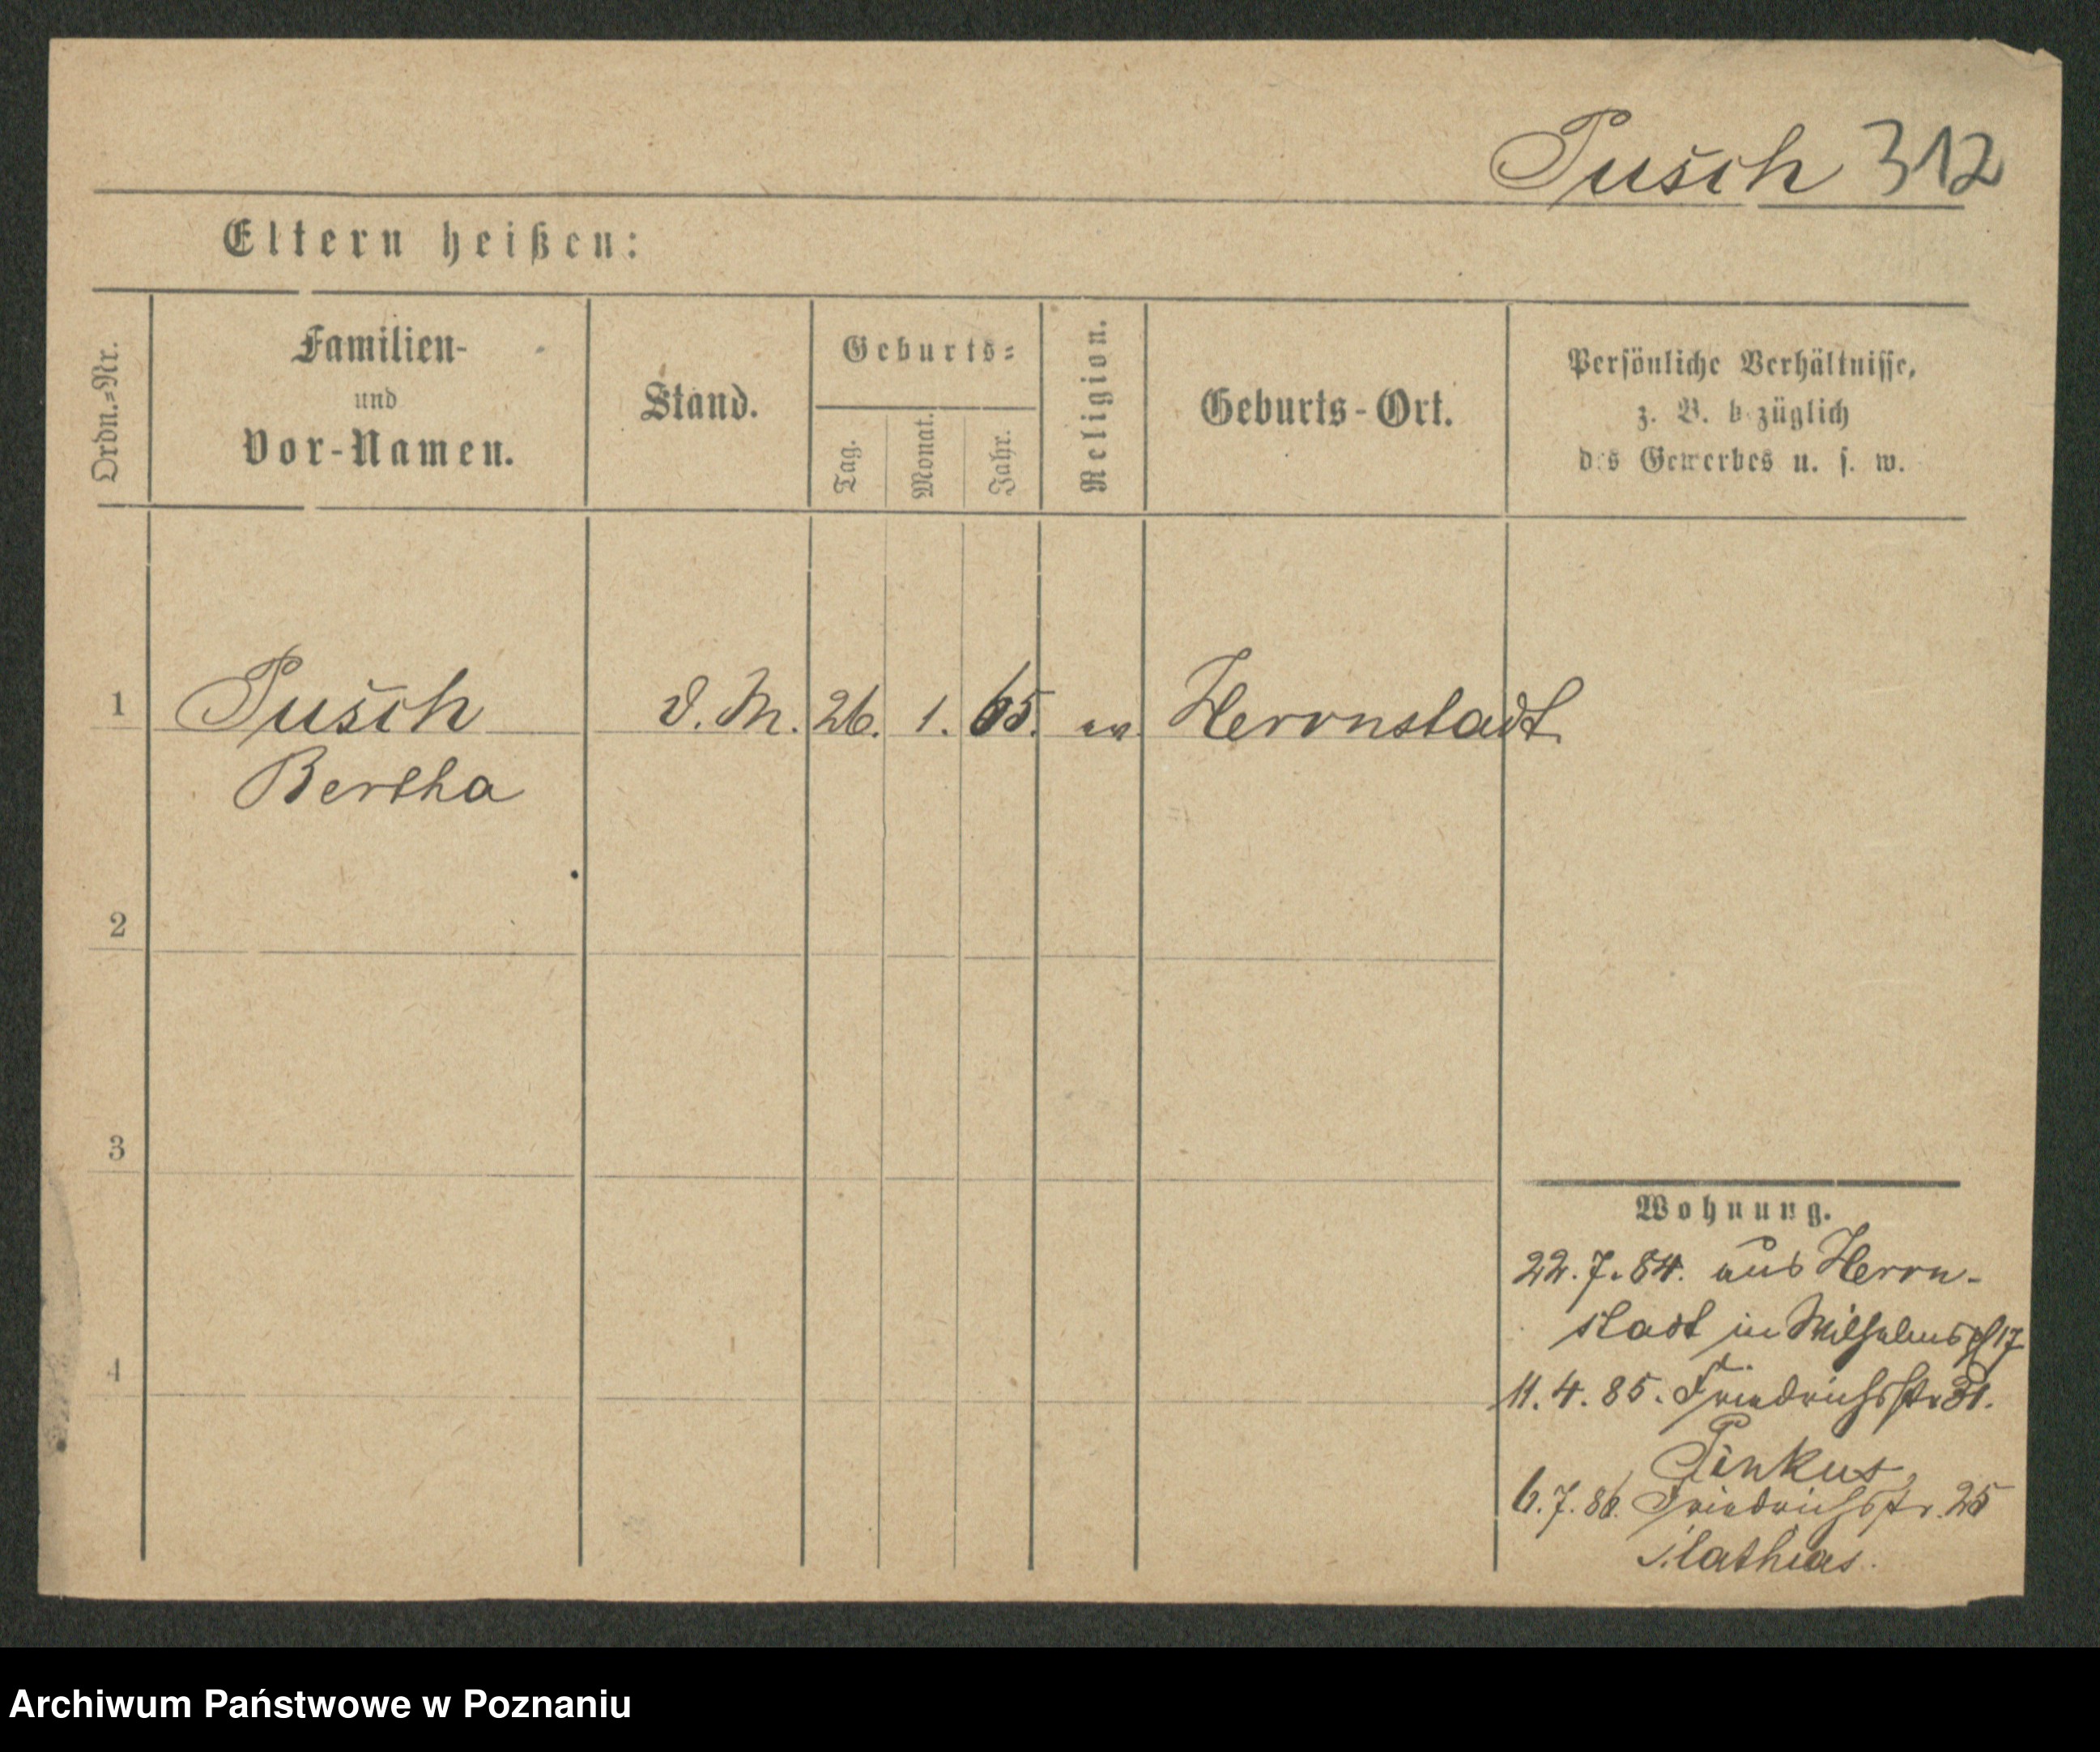 Pusch 312
Eltern heißen:
Ordn.=Nr.
Familien-
und
Vor-Namen.
Stand.
Geburts=
Tag.
Monat.
Jahr.
Religion.
Geburts-Ort.
Persönliche Verhältnisse,
z. B. bezüglich
des Gewerbes u. s. w.
1 Pusch D. M. 26. 1. 65. ev. Herrnstadt
Bertha
2
3
4
Wohnung.
22.7.84. aus Herrn-
stadt in Wilhelmspl 17
11.4.85. Friedrichsstr 31.
Pinkus,
6.7.86. Friedrichsstr. 25
Mathias.
Archiwum Państwowe w Poznaniu